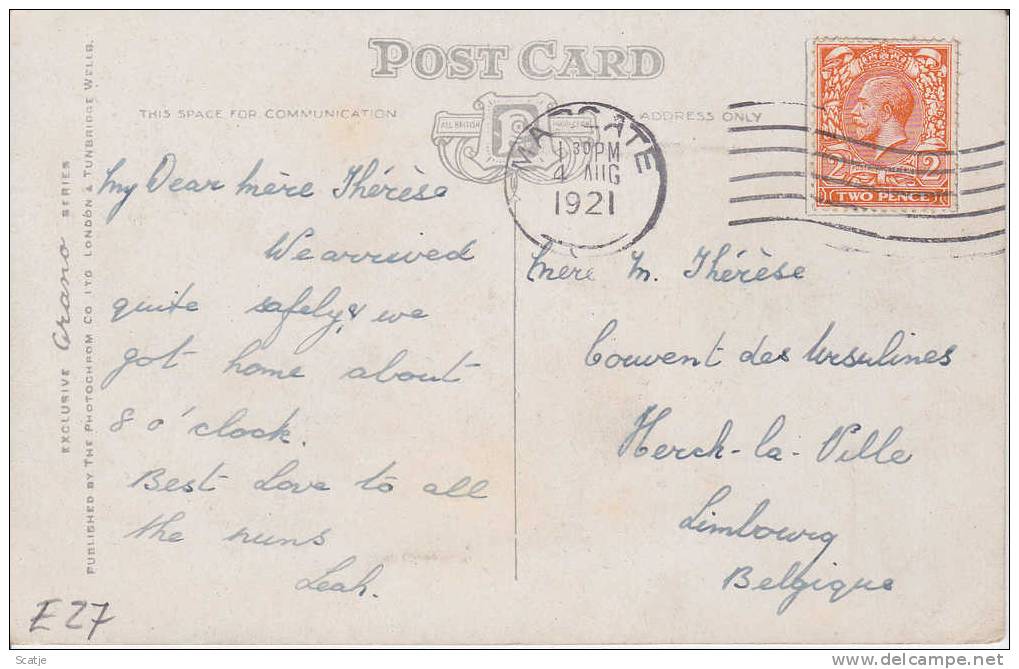 POST CARD
THIS SPACE FOR COMMUNICATION
ADDRESS ONLY
ALL BRITISH
EXCLUSIVE Grano SERIES
PUBLISHED BY THE PHOTOCHROM CO LTD LONDON & TUNBRIDGE WELLS.
MARGATE
1 30PM
4 AUG
1921
2 2
TWO PENCE
My Dear Mère Thérèse
We arrived
quite safely, & we
got home about
8 o'clock.
Best Love to all
the nuns
Leah.
Mère M. Thérèse
Couvent des Ursulines
Herck-la-Ville
Limbourg
Belgique
E 27
Scatje
www.delcampe.net